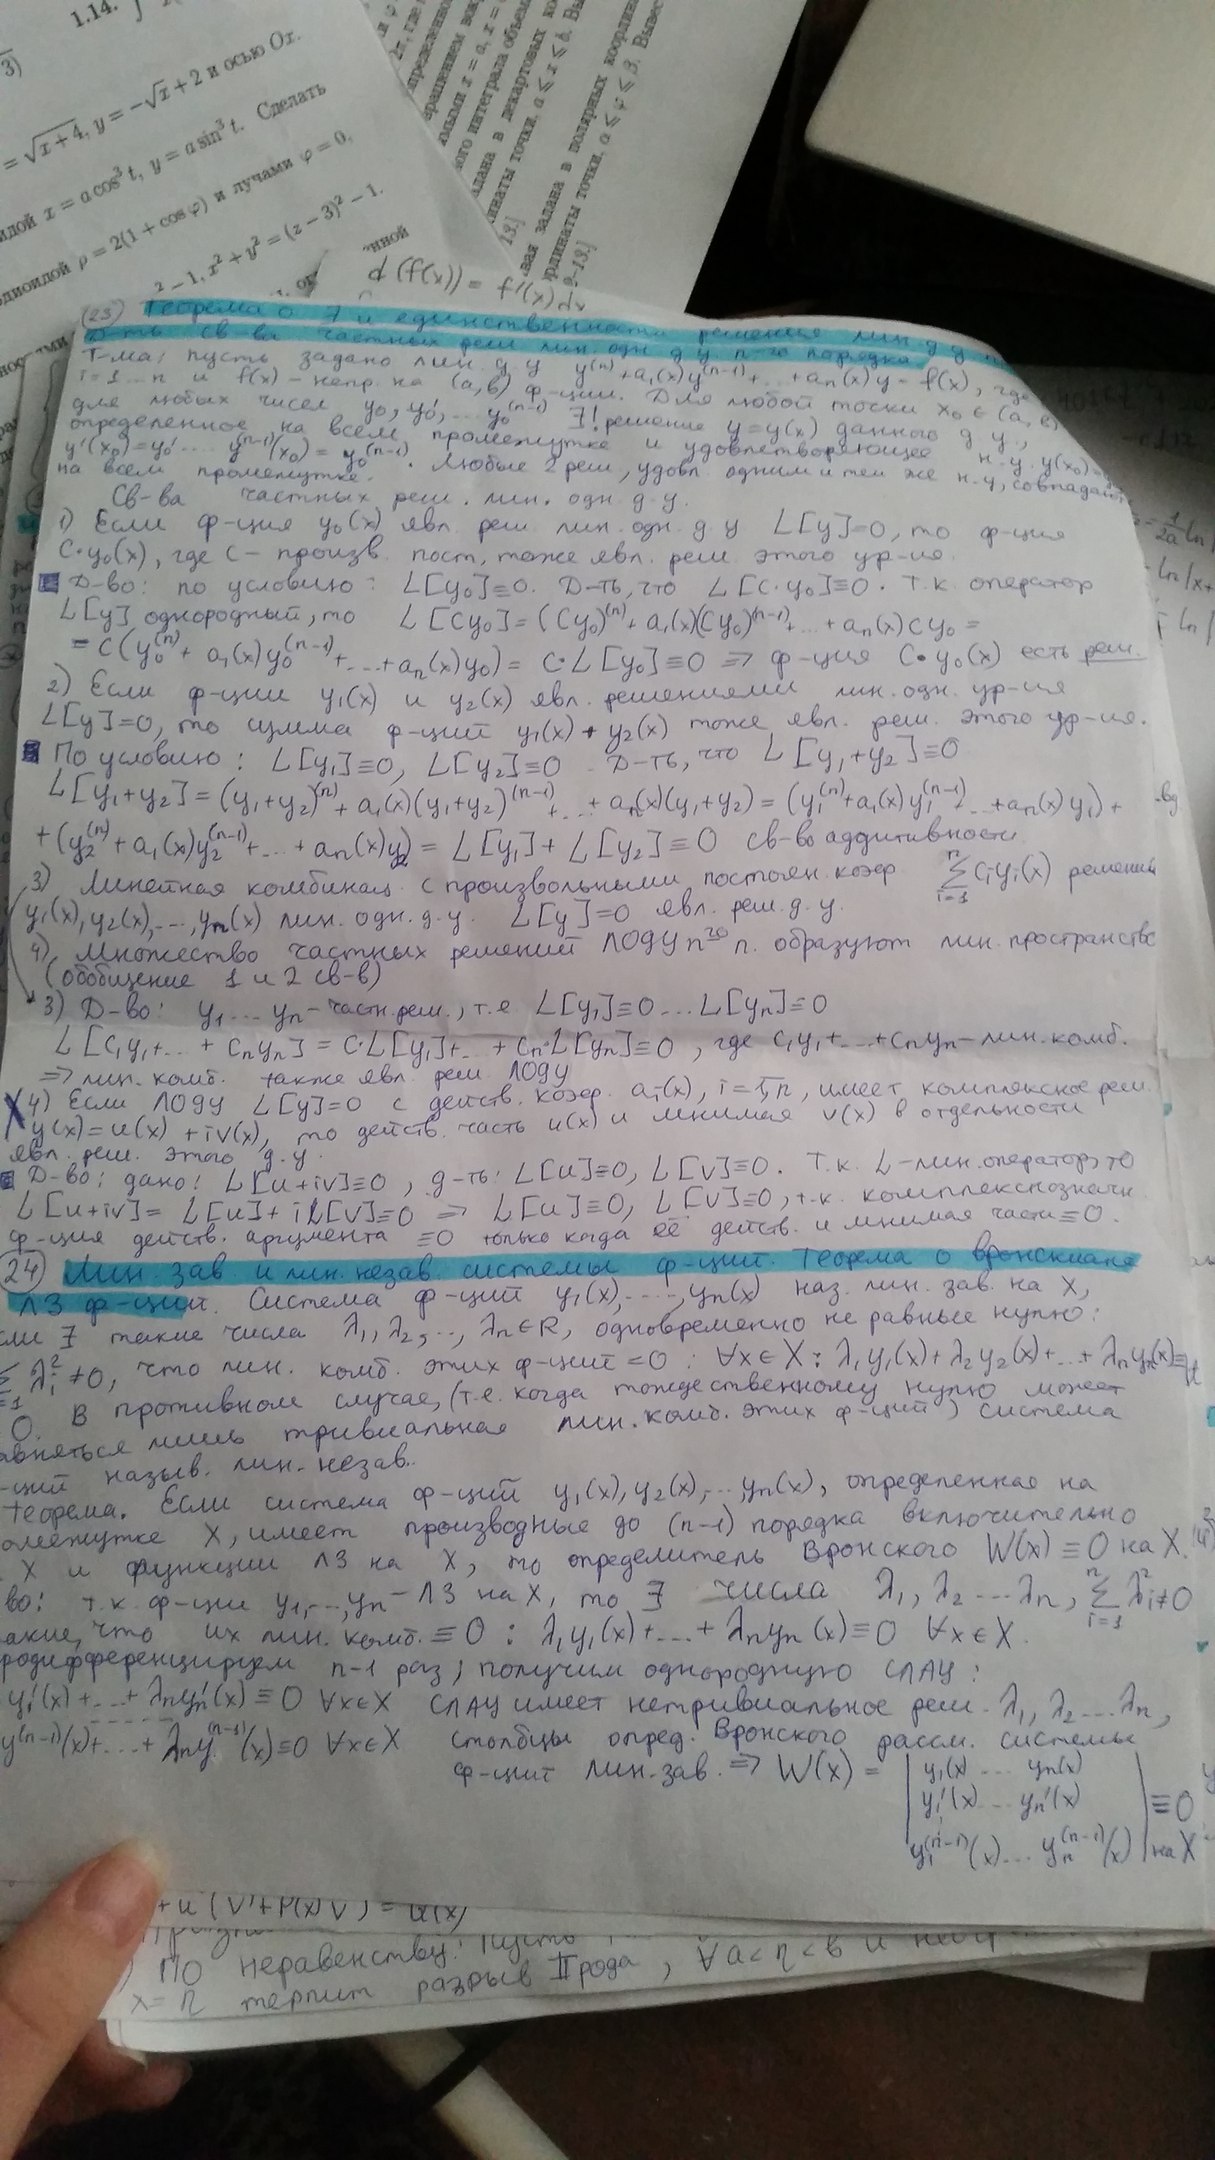 1.14.
3)
= √(x+4), y = −√x + 2 и осью Ox.
x = a cos³ t, y = a sin³ t. Сделать
ρ = 2(1 + cos φ) и лучами φ = 0,
2 − 1, x² + y² = (z − 3)² − 1.
d (f(x)) = f'(x) dx
(23) Теорема о ∃ и единственности решения лин д у
Д-ть св-ва частных реш лин. одн д у n-го порядка
Т-ма: пусть задано лин. д у y⁽ⁿ⁾+a₁(x)y⁽ⁿ⁻¹⁾+...+aₙ(x)y = f(x), где
i=1...n и f(x) – непр. на (a,b) ф-ции. Для любой точки x₀ ∈ (a,b)
для любых чисел y₀, y₀', ... y₀⁽ⁿ⁻¹⁾ ∃! решение y=y(x) данного д.у.,
определенное на всем промежутке и удовлетворяющее н.у. y(x₀)=
y'(x₀)=y₀' .... y⁽ⁿ⁻¹⁾(x₀)=y₀⁽ⁿ⁻¹⁾. Любые 2 реш, удовл. одним и тем же н.у, совпадают
на всем промежутке.
Св-ва частных реш. лин. одн. д.у.
1) Если ф-ция y₀(x) явл. реш лин. одн. д.у L[y]=0, то ф-ция
C·y₀(x), где C – произв. пост, тоже явл. реш. этого ур-ия.
Д-во: по условию: L[y₀]≡0. Д-ть, что L[C·y₀]≡0. Т.к. оператор
L[y] однородный, то L[Cy₀]=(Cy₀)⁽ⁿ⁾+a₁(x)(Cy₀)⁽ⁿ⁻¹⁾+...+aₙ(x)Cy₀=
=C(y₀⁽ⁿ⁾+a₁(x)y₀⁽ⁿ⁻¹⁾+...+aₙ(x)y₀)=C·L[y₀]≡0 ⇒ ф-ция C·y₀(x) есть реш.
2) Если ф-ции y₁(x) и y₂(x) явл. решениями лин. одн. ур-ия
L[y]=0, то сумма ф-ций y₁(x)+y₂(x) тоже явл. реш. этого ур-ия.
По условию: L[y₁]≡0, L[y₂]≡0 Д-ть, что L[y₁+y₂]≡0
L[y₁+y₂]=(y₁+y₂)⁽ⁿ⁾+a₁(x)(y₁+y₂)⁽ⁿ⁻¹⁾+...+aₙ(x)(y₁+y₂)=(y₁⁽ⁿ⁾+a₁(x)y₁⁽ⁿ⁻¹⁾+...+aₙ(x)y₁)+
+(y₂⁽ⁿ⁾+a₁(x)y₂⁽ⁿ⁻¹⁾+...+aₙ(x)y₂)=L[y₁]+L[y₂]≡0 св-во аддитивности
3) Линейная комбинац. с произвольными постоян. коэф Σⁿᵢ₌₁ Cᵢyᵢ(x) решений
y₁(x), y₂(x),..., yₙ(x) лин. одн. д.у. L[y]=0 явл. реш. д.у.
4) Множество частных решений ЛОДУ nго п. образуют лин. пространство
(обобщение 1 и 2 св-в)
3) Д-во: y₁...yₙ – частн. реш., т.е L[y₁]≡0...L[yₙ]≡0
L[C₁y₁+...+Cₙyₙ]=C·L[y₁]+...+Cₙ·L[yₙ]≡0, где C₁y₁+...+Cₙyₙ – лин. комб.
⇒ лин. комб. также явл. реш. ЛОДУ
4) Если ЛОДУ L[y]=0 с действ. коэф. aᵢ(x), i=1,n, имеет комплексное реш.
y(x)=u(x)+iv(x), то действ. часть u(x) и мнимая v(x) в отдельности
явл. реш. этого д.у.
Д-во: дано: L[u+iv]≡0, д-ть: L[u]≡0, L[v]≡0. Т.к. L-лин. оператор, то
L[u+iv]=L[u]+iL[v]≡0 ⇒ L[u]≡0, L[v]≡0, т.к. комплекснозначн.
ф-ция действ. аргумента ≡0 только когда её действ. и мнимая части≡0.
24) Лин. зав. и лин. незав. системы ф-ций. Теорема о вронскиане
ЛЗ ф-ций. Система ф-ций y₁(x),....,yₙ(x) наз. лин. зав. на X,
сли ∃ такие числа λ₁, λ₂,..., λₙ∈R, одновременно не равные нулю:
λᵢ²≠0, что лин. комб. этих ф-ций=0: ∀x∈X: λ₁y₁(x)+λ₂y₂(x)+...+λₙyₙ(x)≡
0. В противном случае, (т.е. когда тождественному нулю может
авняться лишь тривиальная лин. комб. этих ф-ций) система
-ций назыв. лин. незав.
Теорема. Если система ф-ций y₁(x), y₂(x),..., yₙ(x), определенная на
омежутке X, имеет производные до (n-1) порядка включительно
X и функции ЛЗ на X, то определитель Вронского W(x)≡0 на X.
во: т.к. ф-ции y₁,...,yₙ – ЛЗ на X, то ∃ числа λ₁, λ₂...λₙ, Σⁿᵢ₌₁ λᵢ²≠0
акие, что их лин. комб.≡0: λ₁y₁(x)+...+λₙyₙ(x)≡0 ∀x∈X.
родифференцируем n-1 раз, получим однородную СЛАУ:
y₁'(x)+...+λₙyₙ'(x)≡0 ∀x∈X СЛАУ имеет нетривиальное реш. λ₁, λ₂...λₙ,
y⁽ⁿ⁻¹⁾(x)+...+λₙy⁽ⁿ⁻¹⁾(x)≡0 ∀x∈X столбцы опред. Вронского рассм. системы
ф-ций лин. зав. ⇒ W(x)= | y₁(x) ... yₙ(x)
y₁'(x)... yₙ'(x) | ≡0
y₁⁽ⁿ⁻¹⁾(x)... yₙ⁽ⁿ⁻¹⁾(x) | на X
+u(v'+P(x)v)=
по неравенству: Пусть
x=η терпит разрыв II рода, ∀ a<η<b и